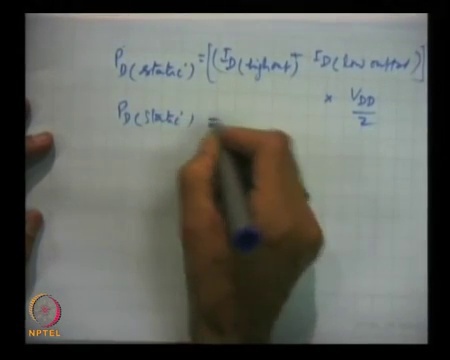 P_D(static) = [(I_D(high out) + I_D(low output)]
× V_DD/2
P_D(static) =
NPTEL